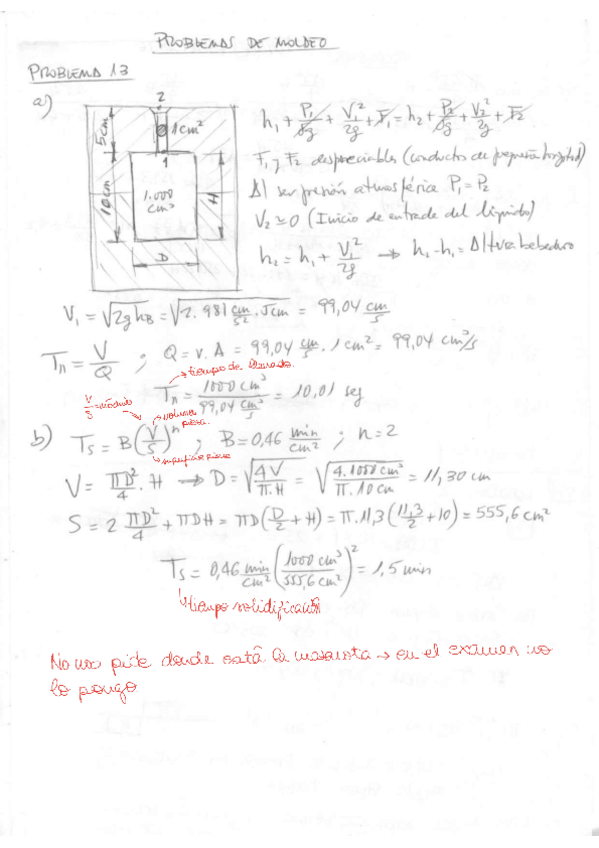 PROBLEMAS DE MOLDEO
PROBLEMA 13
a)
2
1 cm²
5cm
1
10cm
1.000 cm³
H
D
h₁ + P₁/ρg + V₁²/2g + F₁ = h₂ + P₂/ρg + V₂²/2g + F₂
F₁ y F₂ despreciables (conductos de pequeña longitud)
Al ser presión atmosférica P₁ = P₂
V₂ ≃ 0 (Inicio de entrada del líquido)
h₂ = h₁ + V₁²/2g → h₂-h₁ = Altura bebedero
V₁ = √2g h_B = √2. 981 cm/s² . 5cm = 99,04 cm/s
Tₙ = V/Q ; Q = v. A = 99,04 cm/s . 1 cm² = 99,04 cm³/s
tiempo de llenado.
Tₙ = 1000 cm³ / 99,04 cm³/s = 10,01 seg
V/S = módulo
volumen pieza.
b) Tₛ = B(V/S)ⁿ ; B = 0,46 min/cm² ; n = 2
superficie pieza
V = πD²/4 . H → D = √4V/π.H = √4. 1000 cm³/π. 10 cm = 11,30 cm
S = 2 πD²/4 + πDH = πD(D/2 + H) = π. 11,3(11,3/2 + 10) = 555,6 cm²
Tₛ = 0,46 min/cm² (1000 cm³/555,6 cm²)² = 1,5 min
tiempo solidificación
No nos pide donde está la mazarota → en el examen no
lo pongo